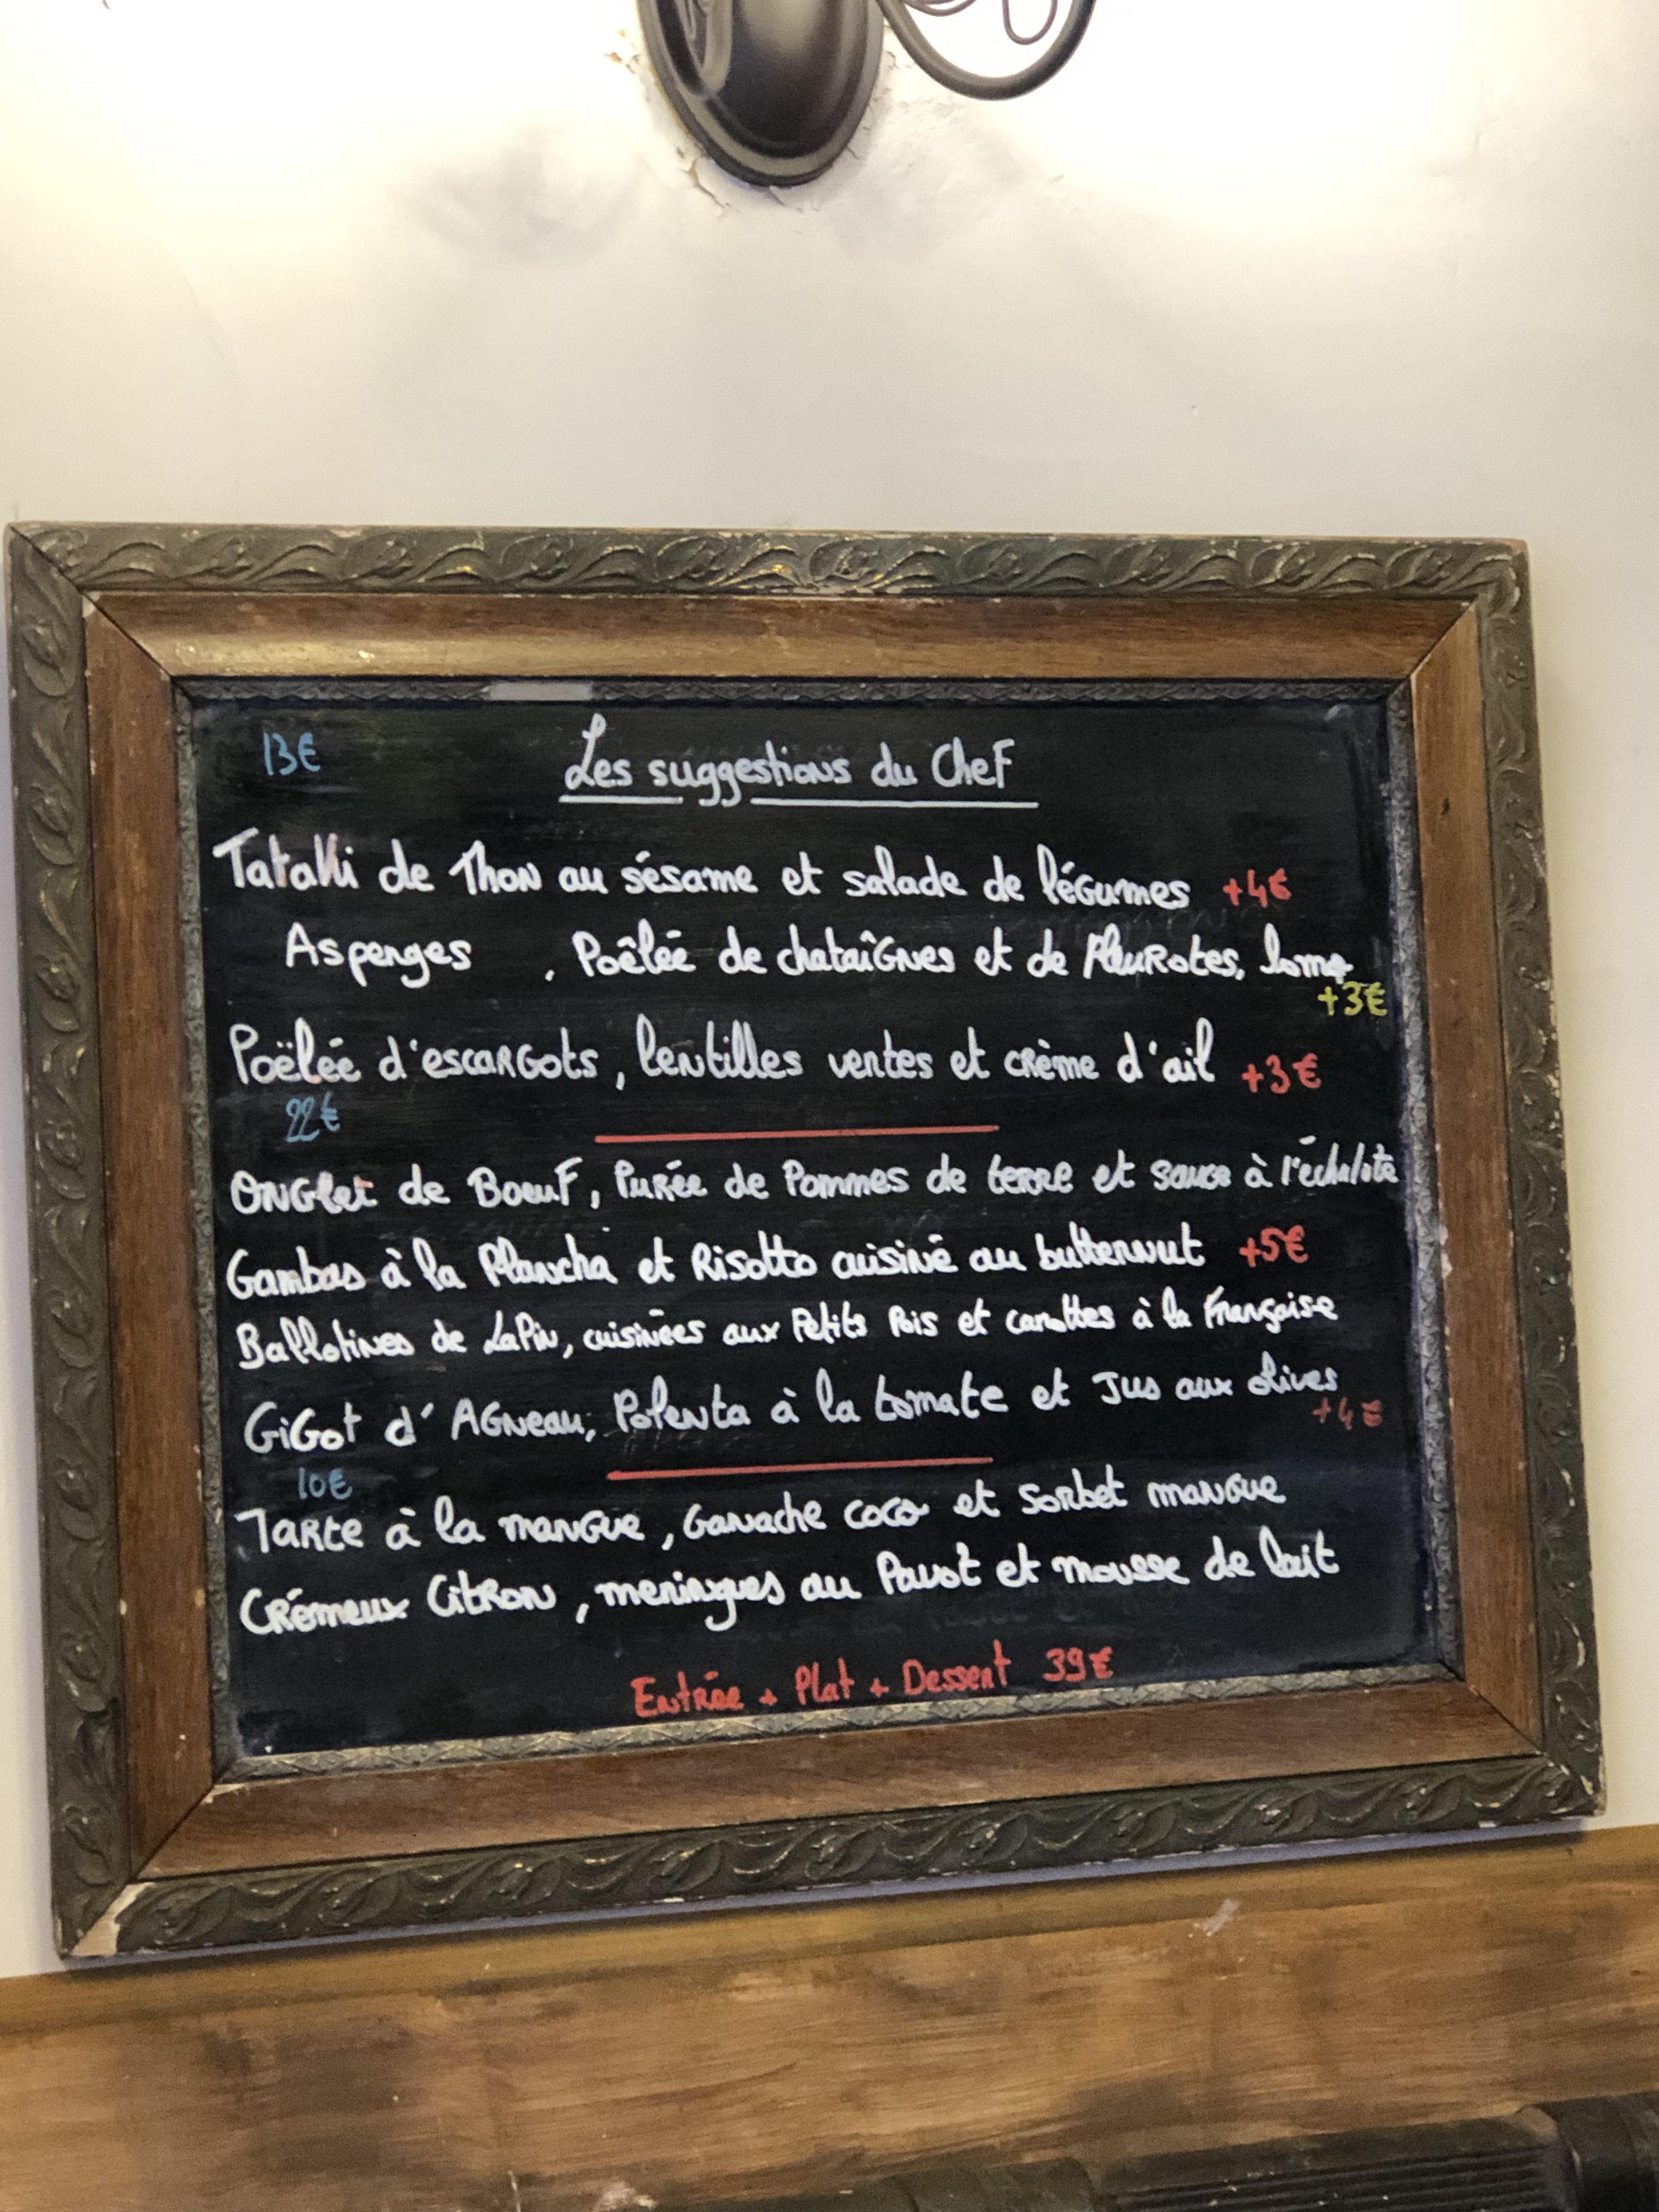 13€
Les suggestions du Chef
Tataki de Thon au sésame et salade de légumes +4€
Asperges , Poêlée de chataîgnes et de Pleurotes,
+3€
Poëlée d'escargots, lentilles vertes et crème d'ail +3€
22€
Onglet de Boeuf, Purée de Pommes de terre et sauce à l'échalote
Gambas à la Plancha et Risotto cuisiné au butternut +5€
Ballotines de Lapin, cuisinées aux Petits Pois et carottes à la Française
Gigot d'Agneau, Polenta à la tomate et Jus aux olives
+4€
10€
Tarte à la mangue, Ganache coco et sorbet mangue
Crémeux Citron, meringues au Pavot et mousse de lait
Entrée + Plat + Dessert 39€